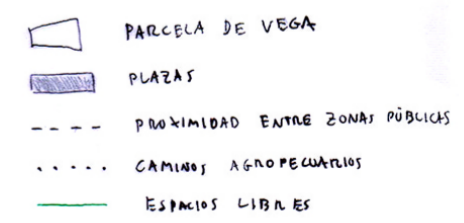 PARCELA DE VEGA
PLAZAS
PROXIMIDAD ENTRE ZONAS PÚBLICAS
CAMINOS AGROPECUARIOS
ESPACIOS LIBRES